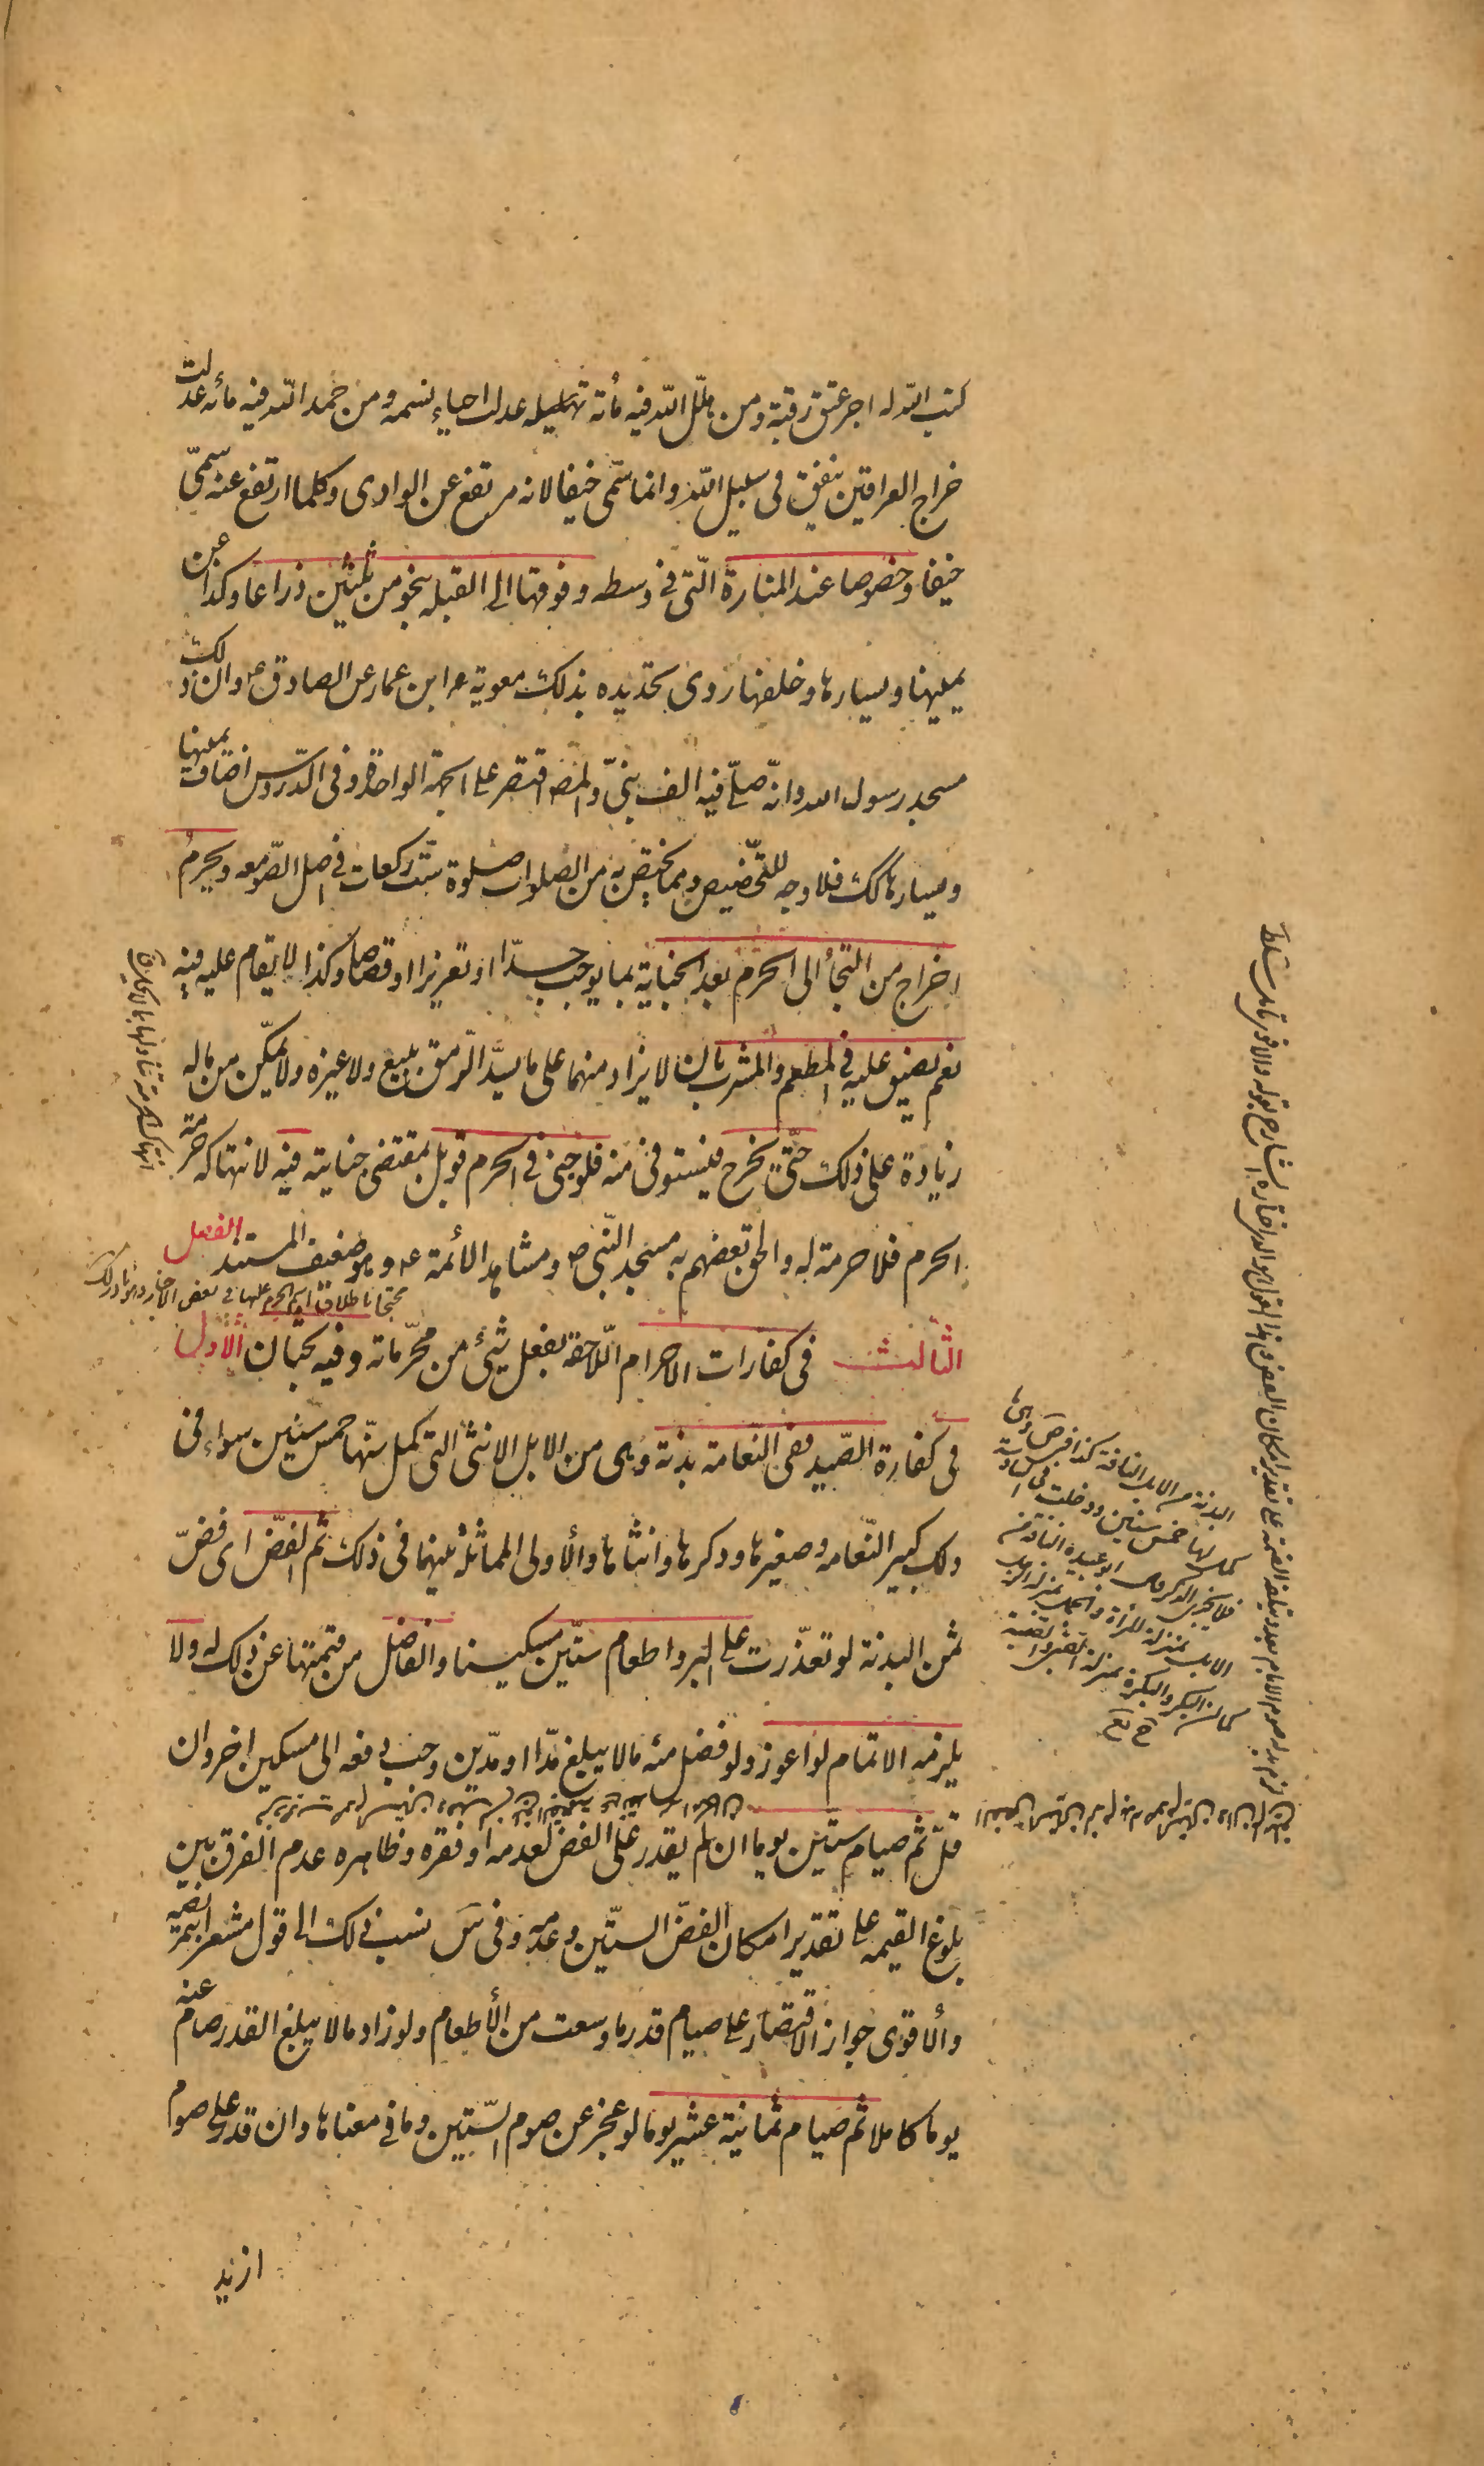 كتب الله له اجر عتق رقبة ومن هلل الله فيه مأة تهليله عدلت احياء نسمه ومن حمد الله فيه مائه عدلت
خراج العراقين ينفق فى سبيل الله وانما سمّى خيفا لانه مرتفع عن الوادى وكلما ارتفع عنه سمّى
خيفا وخصوصا عند المنارة الّتى فى وسطه وفوقها الى القبله بنحو من ثلثين ذراعا وكذا عن
يمينها ويسارها وخلفها روى تحديده بذلك معوية ابن عمار عن الصادق ع وان ذلك
مسجد رسول الله وانّه صلّى فيه الف نبىّ والمص اقتصر على الجهة الواحدة وفى الدّروس اضاف يمينها
ويسارها كك فلا وجه للتّخصيص ومما يختص به من الصلوات صلوة ستّ ركعات فى اصل الصّومعه ويحرم
اخراج من التجأ الى الحرم بعد الجناية بما يوجب حدّا او تعزيرا او قصاصا وكذا لا يقام عليه فيه
نعم يضيق عليه فى المطعم والمشرب بان لا يزاد منهما على ما يسدّ الرّمق ببيع ولا غيره ولا يمكّن من ماله
زيادة على ذلك حتّى يخرج فيستوفى منه فلو جنى فى الحرم قوبل بمقتضى جنايته فيه لانتهاكه حرمة
الحرم فلا حرمة له والحق بعضهم به مسجد النّبى ص ومشاهد الأئمة ع وهو ضعيف المستند الفصل
محتجا باطلاق اسم الحرم عليها فى بعض الاخبار
الثّالث فى كفارات الاحرام اللّاحقة بفعل شئ من محرّماته وفيه بحثان الأوّل
فى كفارة الصّيد ففى النّعامة بدنة وهى من الابل الانثى التى كمل سنّها خمس سنين سواء فى
ذلك كبير النّعامه وصغيرها وذكرها وانثاها والأولى المماثلة بينهما فى ذلك ثم الفضّ اى فضّ
ثمن البدنة لو تعذّرت على البر واطعام ستّين مسكينا والفاضل من قيمتها عن ذلك له ولا
يلزمه الاتمام لو اعوز ولو فضل منه ما لا يبلغ مدّا او مدّين وجب دفعه الى مسكين اخر وان
قلّ ثم صيام ستّين يوما ان لم يقدر على الفض لعدمه او فقره وظاهره عدم الفرق بين
بلوغ القيمه على تقدير امكان الفضّ الستّين وعدمه وفى س نسب ذلك الى قول مشعرا بتمريضه
والأقوى جواز الاقتصار على صيام قدر ما وسعت من الأطعام ولو زاد ما لا يبلغ القدر صام عنه
يوما كاملا ثم صيام ثمانية عشر يوما لو عجز عن صوم الستّين وما فى معناها وان قدر على صوم
ازيد
البدنة من الابل الناقة
كمل لها خمس سنين ودخلت فى السادسة
فلا يجزى الذكر قال ابو عبيدة الناقة من
الابل بمنزلة المرأة والجمل بمنزلة الرجل